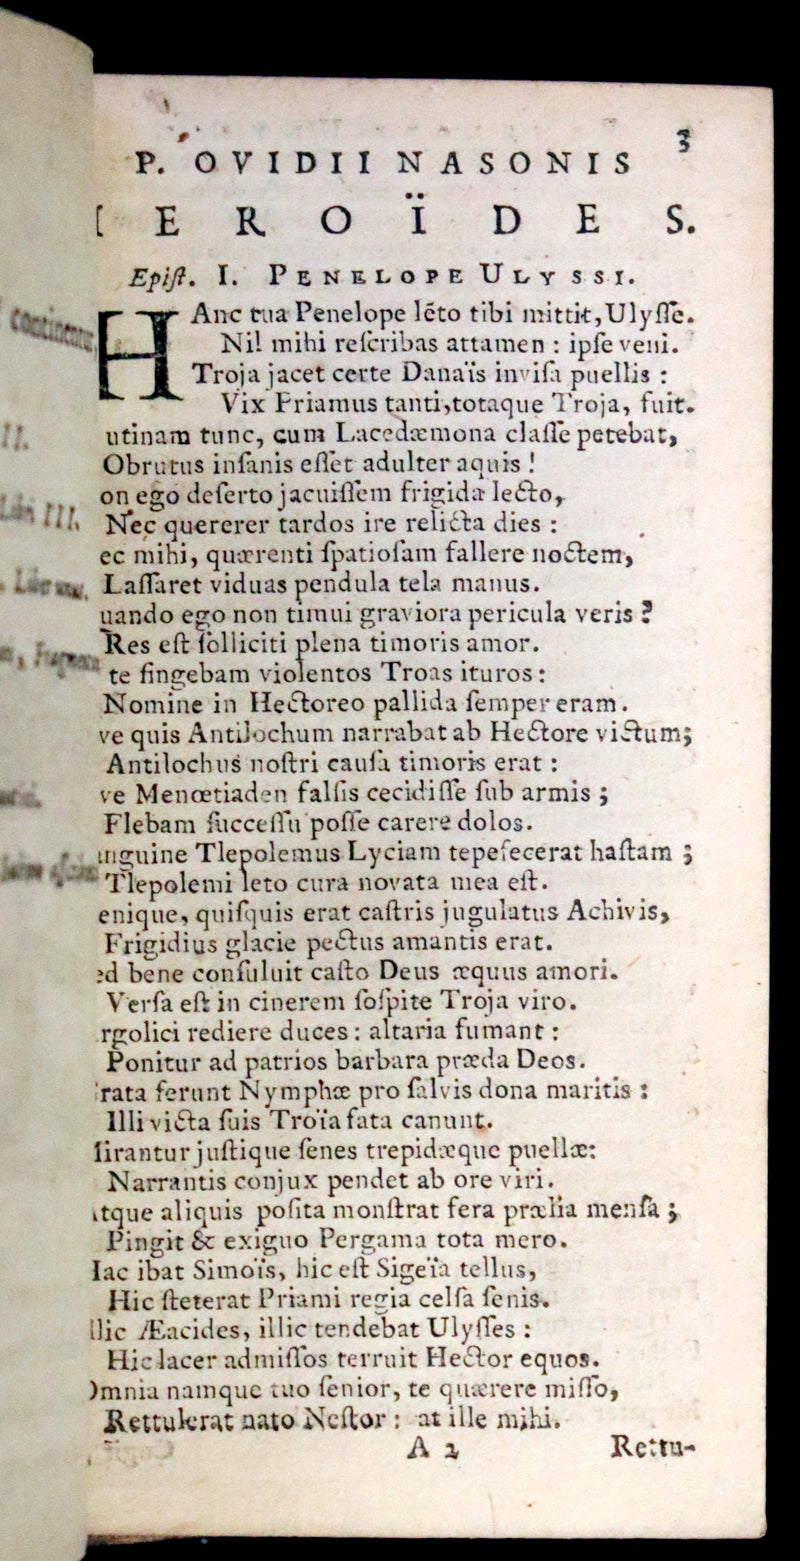 3
P. OVIDII NASONIS
EROÏDES.
Epiſt. I. PENELOPE ULYSSI.
HAnc tua Penelope lēto tibi mittit, Ulyſſe.
Nil mihi reſcribas attamen : ipſe veni.
Troja jacet certe Danaïs inviſa puellis :
Vix Priamus tanti, totaque Troja, fuit.
utinam tunc, cum Lacedæmona claſſe petebat,
Obrutus inſanis eſſet adulter aquis !
on ego deſerto jacuiſſem frigida lecto,
Nec quererer tardos ire relicta dies :
ec mihi, quærenti ſpatioſam fallere noctem,
Laſſaret viduas pendula tela manus.
uando ego non timui graviora pericula veris ?
Res eſt ſolliciti plena timoris amor.
te fingebam violentos Troas ituros :
Nomine in Hectoreo pallida ſemper eram.
ve quis Antilochum narrabat ab Hectore victum;
Antilochus noſtri cauſa timoris erat :
ve Menœtiaden falſis cecidiſſe ſub armis ;
Flebam ſucceſſu poſſe carere dolos.
nguine Tlepolemus Lyciam tepefecerat haſtam ;
Tlepolemi leto cura novata mea eſt.
enique, quiſquis erat caſtris jugulatus Achivis,
Frigidius glacie pectus amantis erat.
ed bene conſuluit caſto Deus æquus amori.
Verſa eſt in cinerem ſoſpite Troja viro.
rgolici rediere duces : altaria fumant :
Ponitur ad patrios barbara præda Deos.
rata ferunt Nymphæ pro ſalvis dona maritis :
Illi victa ſuis Troïa fata canunt.
irantur juſtique ſenes trepidæque puellæ:
Narrantis conjux pendet ab ore viri.
tque aliquis poſita monſtrat fera prælia menſa ;
Pingit & exiguo Pergama tota mero.
ac ibat Simoïs, hic eſt Sigeïa tellus,
Hic ſteterat Priami regia celſa ſenis.
llic Æacides, illic tendebat Ulyſſes :
Hic lacer admiſſos terruit Hector equos.
Omnia namque tuo ſenior, te quærere miſſo,
Rettulerat nato Neſtor : at ille mihi.
A 2 Rettu-